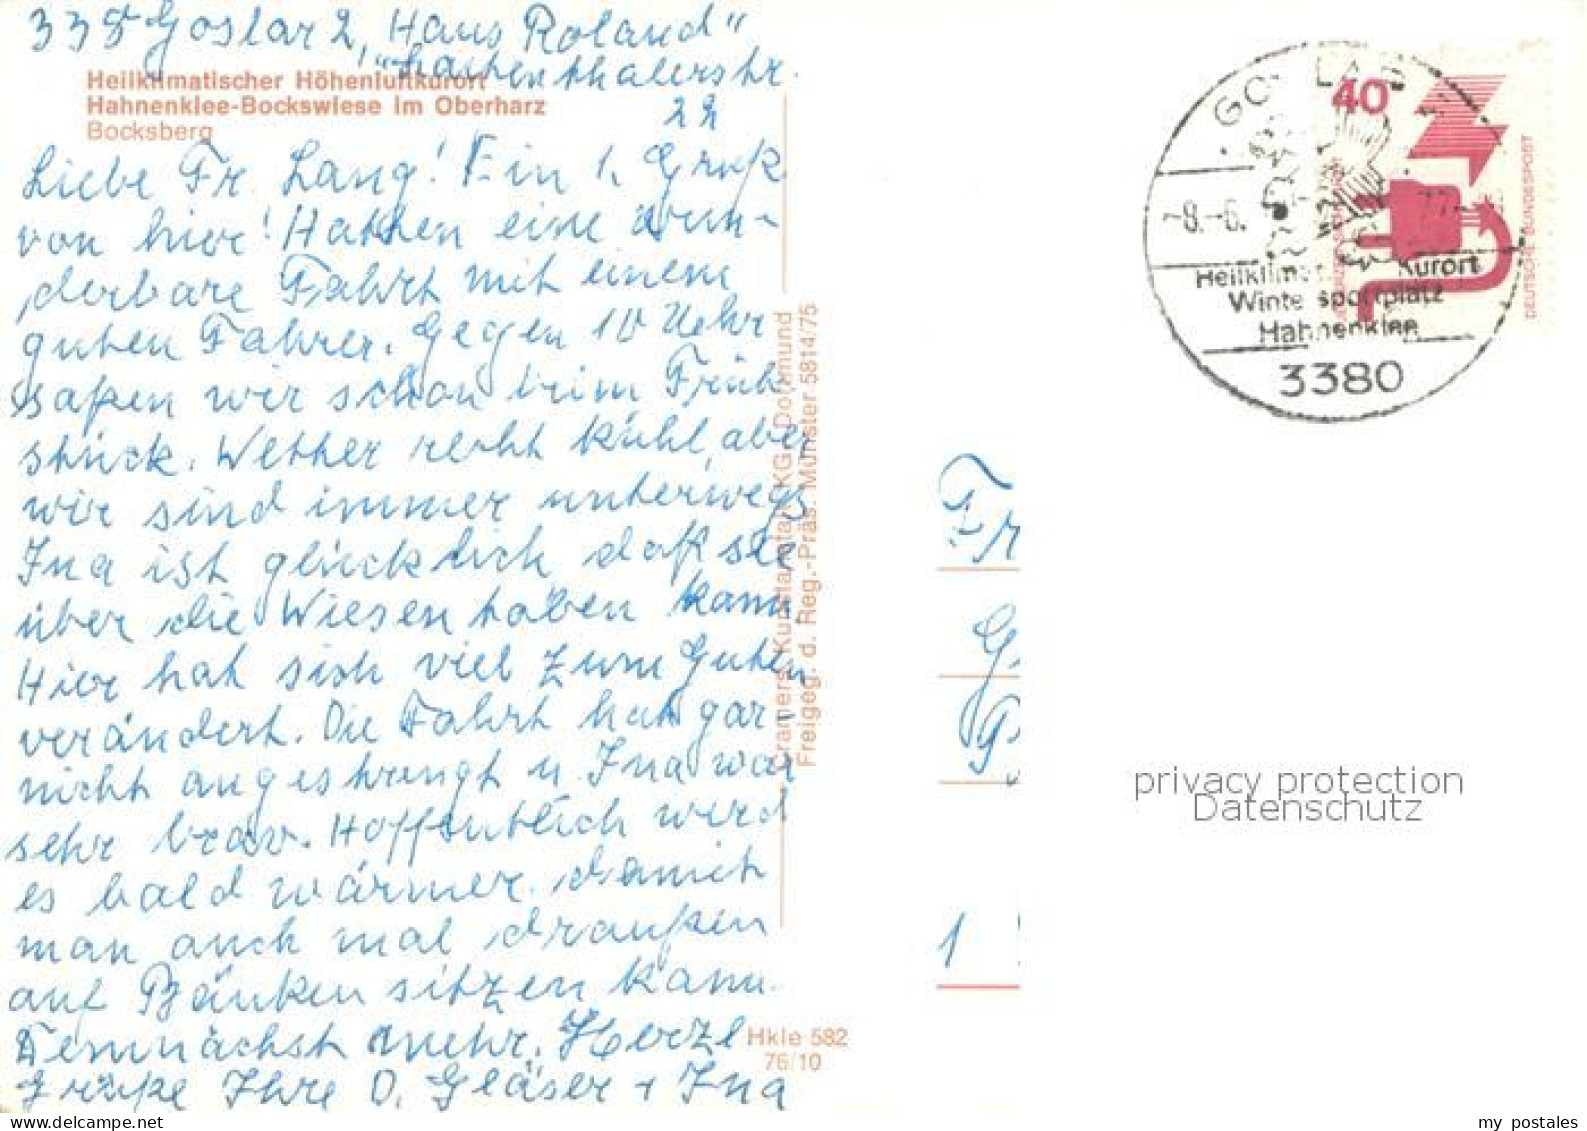 338 Goslar 2, "Haus Roland"
Lautenthalerstr.
22
Heilklimatischer Höhenluftkurort
Hahnenklee-Bockswiese im Oberharz
Bocksberg
Liebe Fr. Lang! Ein 1. Gruß
von hier! Hatten eine wun-
derbare Fahrt mit einem
guten Fahrer. Gegen 10 Uhr
saßen wir schon beim Früh
stück. Wetter recht kühl, aber
wir sind immer unterwegs
Ina ist glücklich daß sie
über die Wiesen toben kann
Hier hat sich viel zum Guten
verändert. Die Fahrt hat gar
nicht angestrengt u. Ina war
sehr brav. Hoffentlich wird
es bald wärmer damit
man auch mal draußen
auf Bänken sitzen kann.
Demnächst mehr. Herzl
Grüße Ihre O. Gläser + Ina
Cramers Kunstanstalt KG, Dortmund
Freigeg. d. Reg.-Präs. Münster 5814/75
Hkle 582
76/10
GOSLAR
-8.-6. 77-
Heilklimat Kurort
Wintersportplatz
Hahnenklee
3380
40
DEUTSCHE BUNDESPOST
Fr
G
1
privacy protection
Datenschutz
my postales